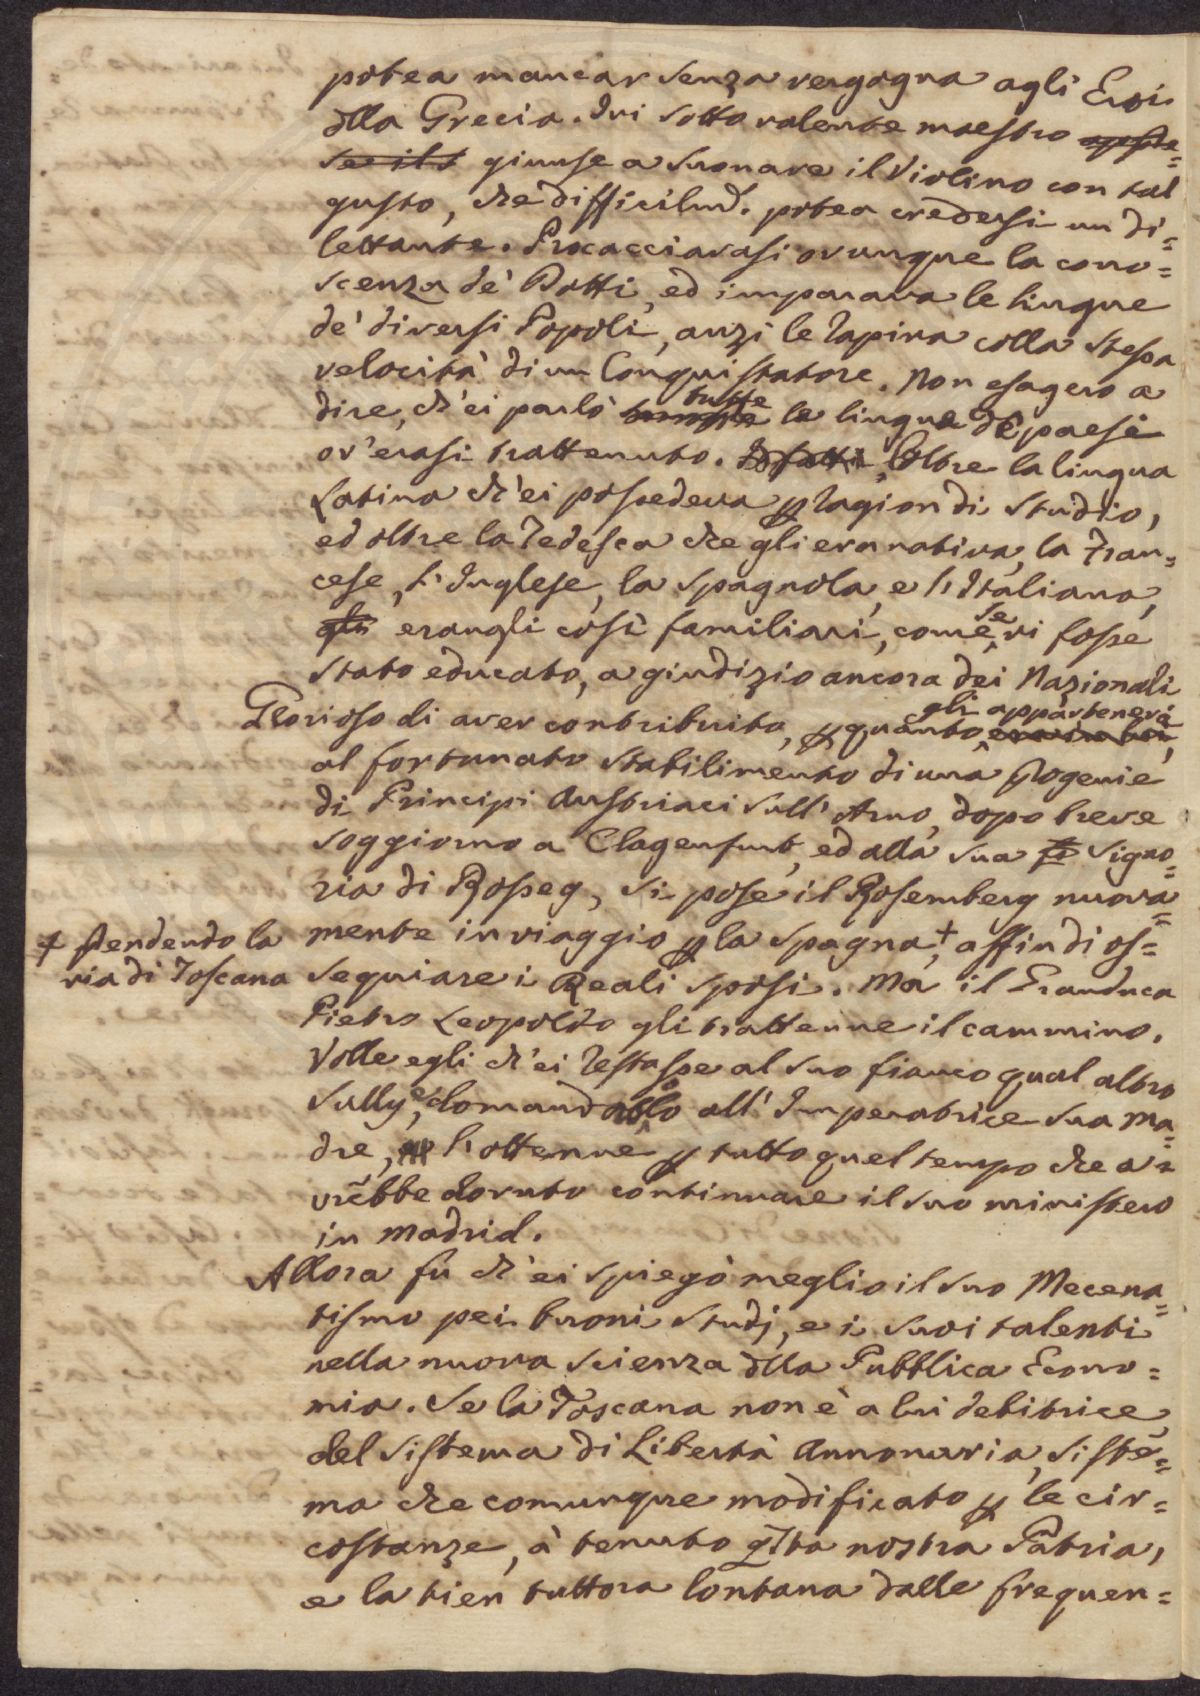 potea mancar senza vergogna agli Eroi
dlla Grecia. Ivi sotto valente maestro
giunse a suonare il Violino con tal
gusto, che difficilmd. potea credersi un di=
lettante. Procacciavasi ovunque la cono=
scenza de' Dotti, ed imparava le lingue
de' diversi Popoli, anzi le rapiva colla stessa
velocità di un Conquistatore. Non esagero a
dire, ch'ei parlò tutte le lingue de paesi
ov'erasi trattenuto. Oltre la lingua
Latina ch'ei possedeva p ragion di studio,
ed oltre la Tedesca che gli era nativa, la Fran=
cese, l'Inglese, la Spagnola, e l'Italiana,
gli erangli così familiari, come se vi fosse
stato educato, a giudizio ancora dei Nazionali
Glorioso di aver contribuito, p quanto gli appartenevà,
al fortunato stabilimento di una Progenie
di Principi Austriaci sull'Arno, dopo breve
soggiorno a Clagenfurt, ed alla sua signo=
ria di Rosseg, si pose il Rosemberg nuova=
mente in viaggio p la Spagna,+ affin di os=
+ prendendo la
via di Toscana
sequiare i Reali Sposi. Ma il Granduca
Pietro Leopoldo gli trattenne il cammino.
Volle egli ch'ei restasse al suo fianco qual altro
Sully, e domandatolo all'Imperatrice sua Ma=
dre, l'ottenne p tutto quel tempo che a=
vrebbe dovuto continuare il suo ministero
in Madrid.
Allora fu ch'ei spiegò meglio il suo Mecena=
tismo pei buoni studj, e i suoi talenti
nella nuova scienza dlla Pubblica Econo=
mia. Se la Toscana non è a lui debitrice
del sistema di Libertà Annonaria, siste=
ma che comunque modificato p le cir=
costanze, à tenuto qsta nostra Patria,
e la tien tuttora lontana dalle frequen=